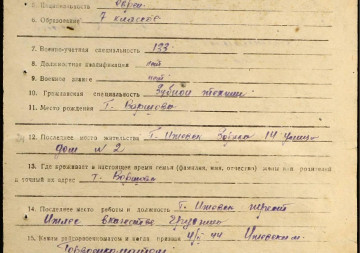 5. Национальность еврей
6. Образование 7 классов
7. Военно-учетная специальность 133
8. Должностная квалификация нет
9. Военное звание нет
10. Гражданская специальность Зубной техник
11. Место рождения г. Варшава
12. Последнее место жительства г. Ижевск 14 улица
дом № 2
13. Где проживает в настоящее время семья (фамилия, имя, отчество) жены или родителей
и точный их адрес г. Варшава
14. Последнее место работы и должность г. Ижевск
в качестве
15. Каким райгорвоенкоматом и когда призван 44 Ижевским
Горвоенкоматом